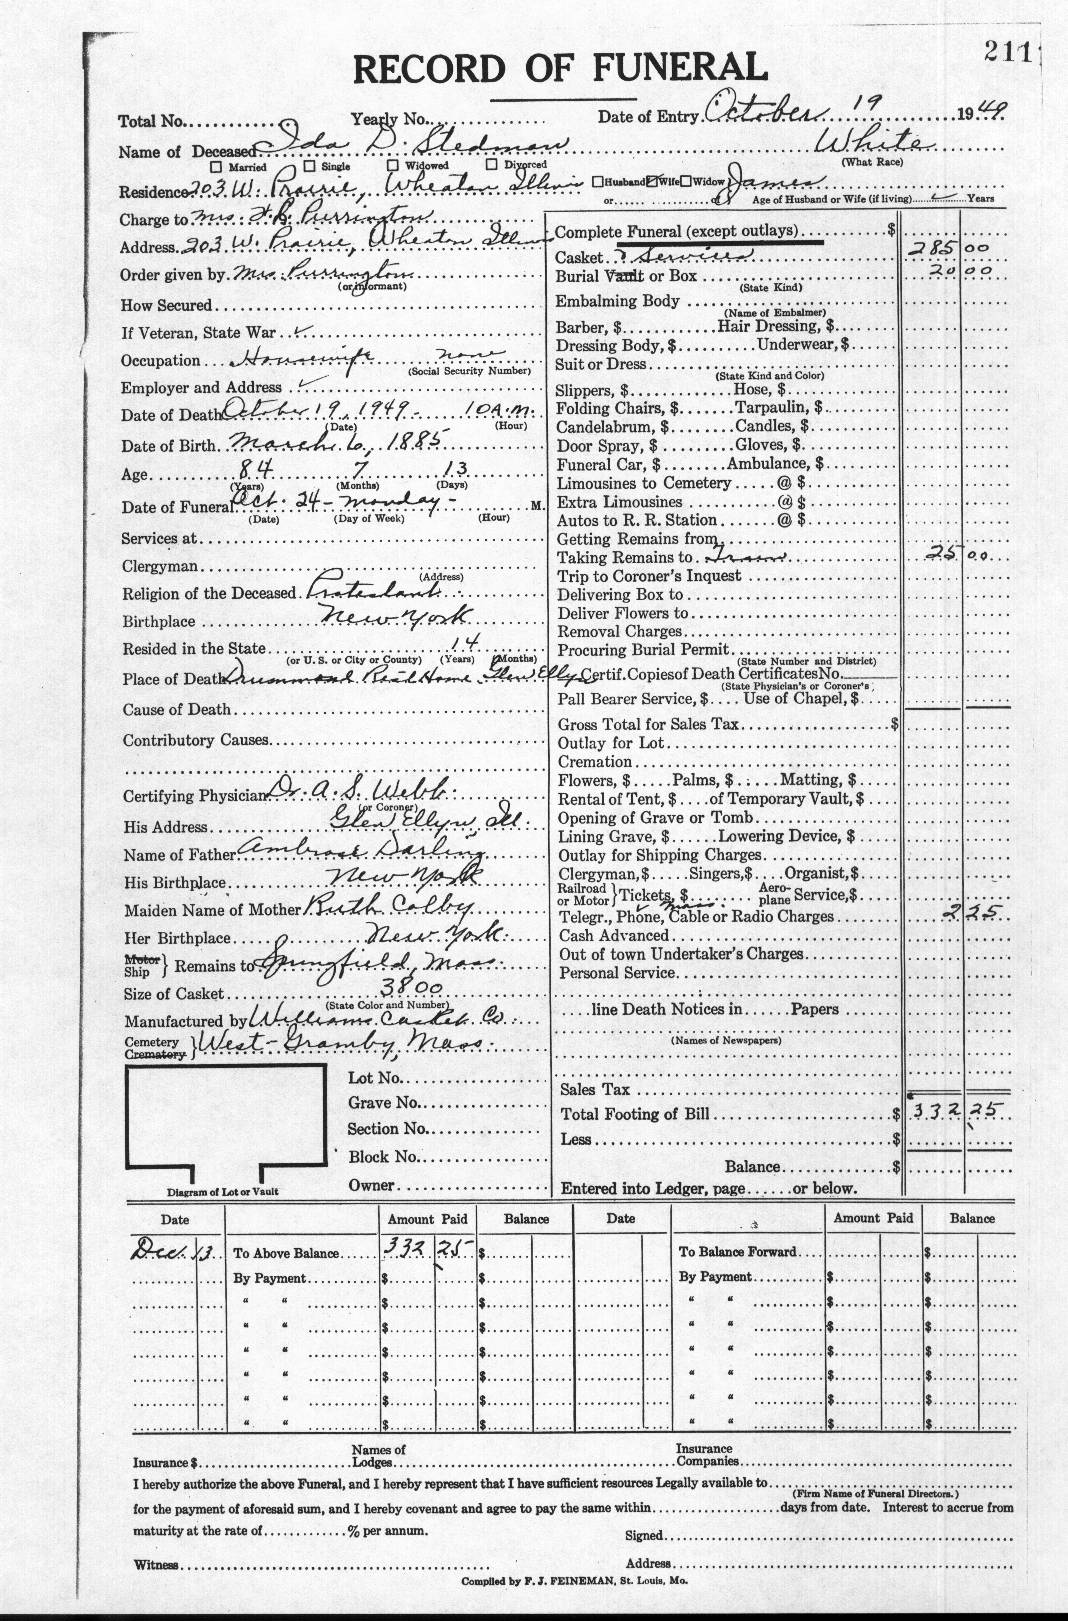 211
RECORD OF FUNERAL
Total No. Yearly No. Date of Entry October 19 1949
Name of Deceased Ida D. Stedman White
(What Race)
Married Single Widowed Divorced
Residence 203 W. Prairie, Wheaton Illinois Husband Wife Widow of James
or Age of Husband or Wife (if living) Years
Charge to Mrs. Purrington
Address. 203 W. Prairie, Wheaton Illinois
Order given by Mrs. Purrington
(or informant)
How Secured
If Veteran, State War ✓
Occupation Housewife none
(Social Security Number)
Employer and Address ✓
Date of Death October 19, 1949 - 10 A.M.
(Date) (Hour)
Date of Birth. March 6, 1885
Age 84 7 13
(Years) (Months) (Days)
Date of Funeral Oct. 24 - Monday - M.
(Date) (Day of Week) (Hour)
Services at
Clergyman
(Address)
Religion of the Deceased. Protestant
Birthplace New York
Resided in the State 14
(or U. S. or City or County) (Years) (Months)
Place of Death Drummond Rest Home Glen Ellyn
Cause of Death
Contributory Causes
Certifying Physician Dr. A. S. Webb
(or Coroner)
His Address Glen Ellyn, Ill.
Name of Father Ambrose Darling
His Birthplace New York
Maiden Name of Mother Ruth Colby
Her Birthplace New York
Motor
Ship } Remains to Springfield, Mass.
Size of Casket 3800
(State Color and Number)
Manufactured by Williams Casket Co.
Cemetery
Crematory } West Granby, Mass.
Lot No.
Grave No.
Section No.
Block No.
Owner
Diagram of Lot or Vault
Complete Funeral (except outlays) $
Casket & Services 285 00
Burial Vault or Box 20 00
(State Kind)
Embalming Body
(Name of Embalmer)
Barber, $ Hair Dressing, $
Dressing Body, $ Underwear, $
Suit or Dress
(State Kind and Color)
Slippers, $ Hose, $
Folding Chairs, $ Tarpaulin, $
Candelabrum, $ Candles, $
Door Spray, $ Gloves, $
Funeral Car, $ Ambulance, $
Limousines to Cemetery @ $
Extra Limousines @ $
Autos to R. R. Station @ $
Getting Remains from
Taking Remains to Train 25 00
Trip to Coroner's Inquest
Delivering Box to
Deliver Flowers to
Removal Charges
Procuring Burial Permit
(State Number and District)
Certif. Copies of Death Certificates No.
(State Physician's or Coroner's)
Pall Bearer Service, $ Use of Chapel, $
Gross Total for Sales Tax $
Outlay for Lot
Cremation
Flowers, $ Palms, $ Matting, $
Rental of Tent, $ of Temporary Vault, $
Opening of Grave or Tomb
Lining Grave, $ Lowering Device, $
Outlay for Shipping Charges
Clergyman, $ Singers, $ Organist, $
Railroad or Motor } Tickets, $ Aero-plane Service, $
✓ Mass.
Telegr., Phone, Cable or Radio Charges 2 25
Cash Advanced
Out of town Undertaker's Charges
Personal Service
line Death Notices in Papers
(Names of Newspapers)
Sales Tax
Total Footing of Bill $ 332 25
Less $
Balance $
Entered into Ledger, page or below.
Date Amount Paid Balance Date Amount Paid Balance
Dec. 13 To Above Balance 332 25 $ To Balance Forward $
By Payment $ $ By Payment $ $
“ “ $ $ “ “ $ $
“ “ $ $ “ “ $ $
“ “ $ $ “ “ $ $
“ “ $ $ “ “ $ $
“ “ $ $ “ “ $ $
“ “ $ $ “ “ $ $
Insurance $ Names of Lodges Insurance Companies
I hereby authorize the above Funeral, and I hereby represent that I have sufficient resources Legally available to
(Firm Name of Funeral Directors.)
for the payment of aforesaid sum, and I hereby covenant and agree to pay the same within days from date. Interest to accrue from
maturity at the rate of % per annum.
Signed
Witness Address
Compiled by F. J. FEINEMAN, St. Louis, Mo.